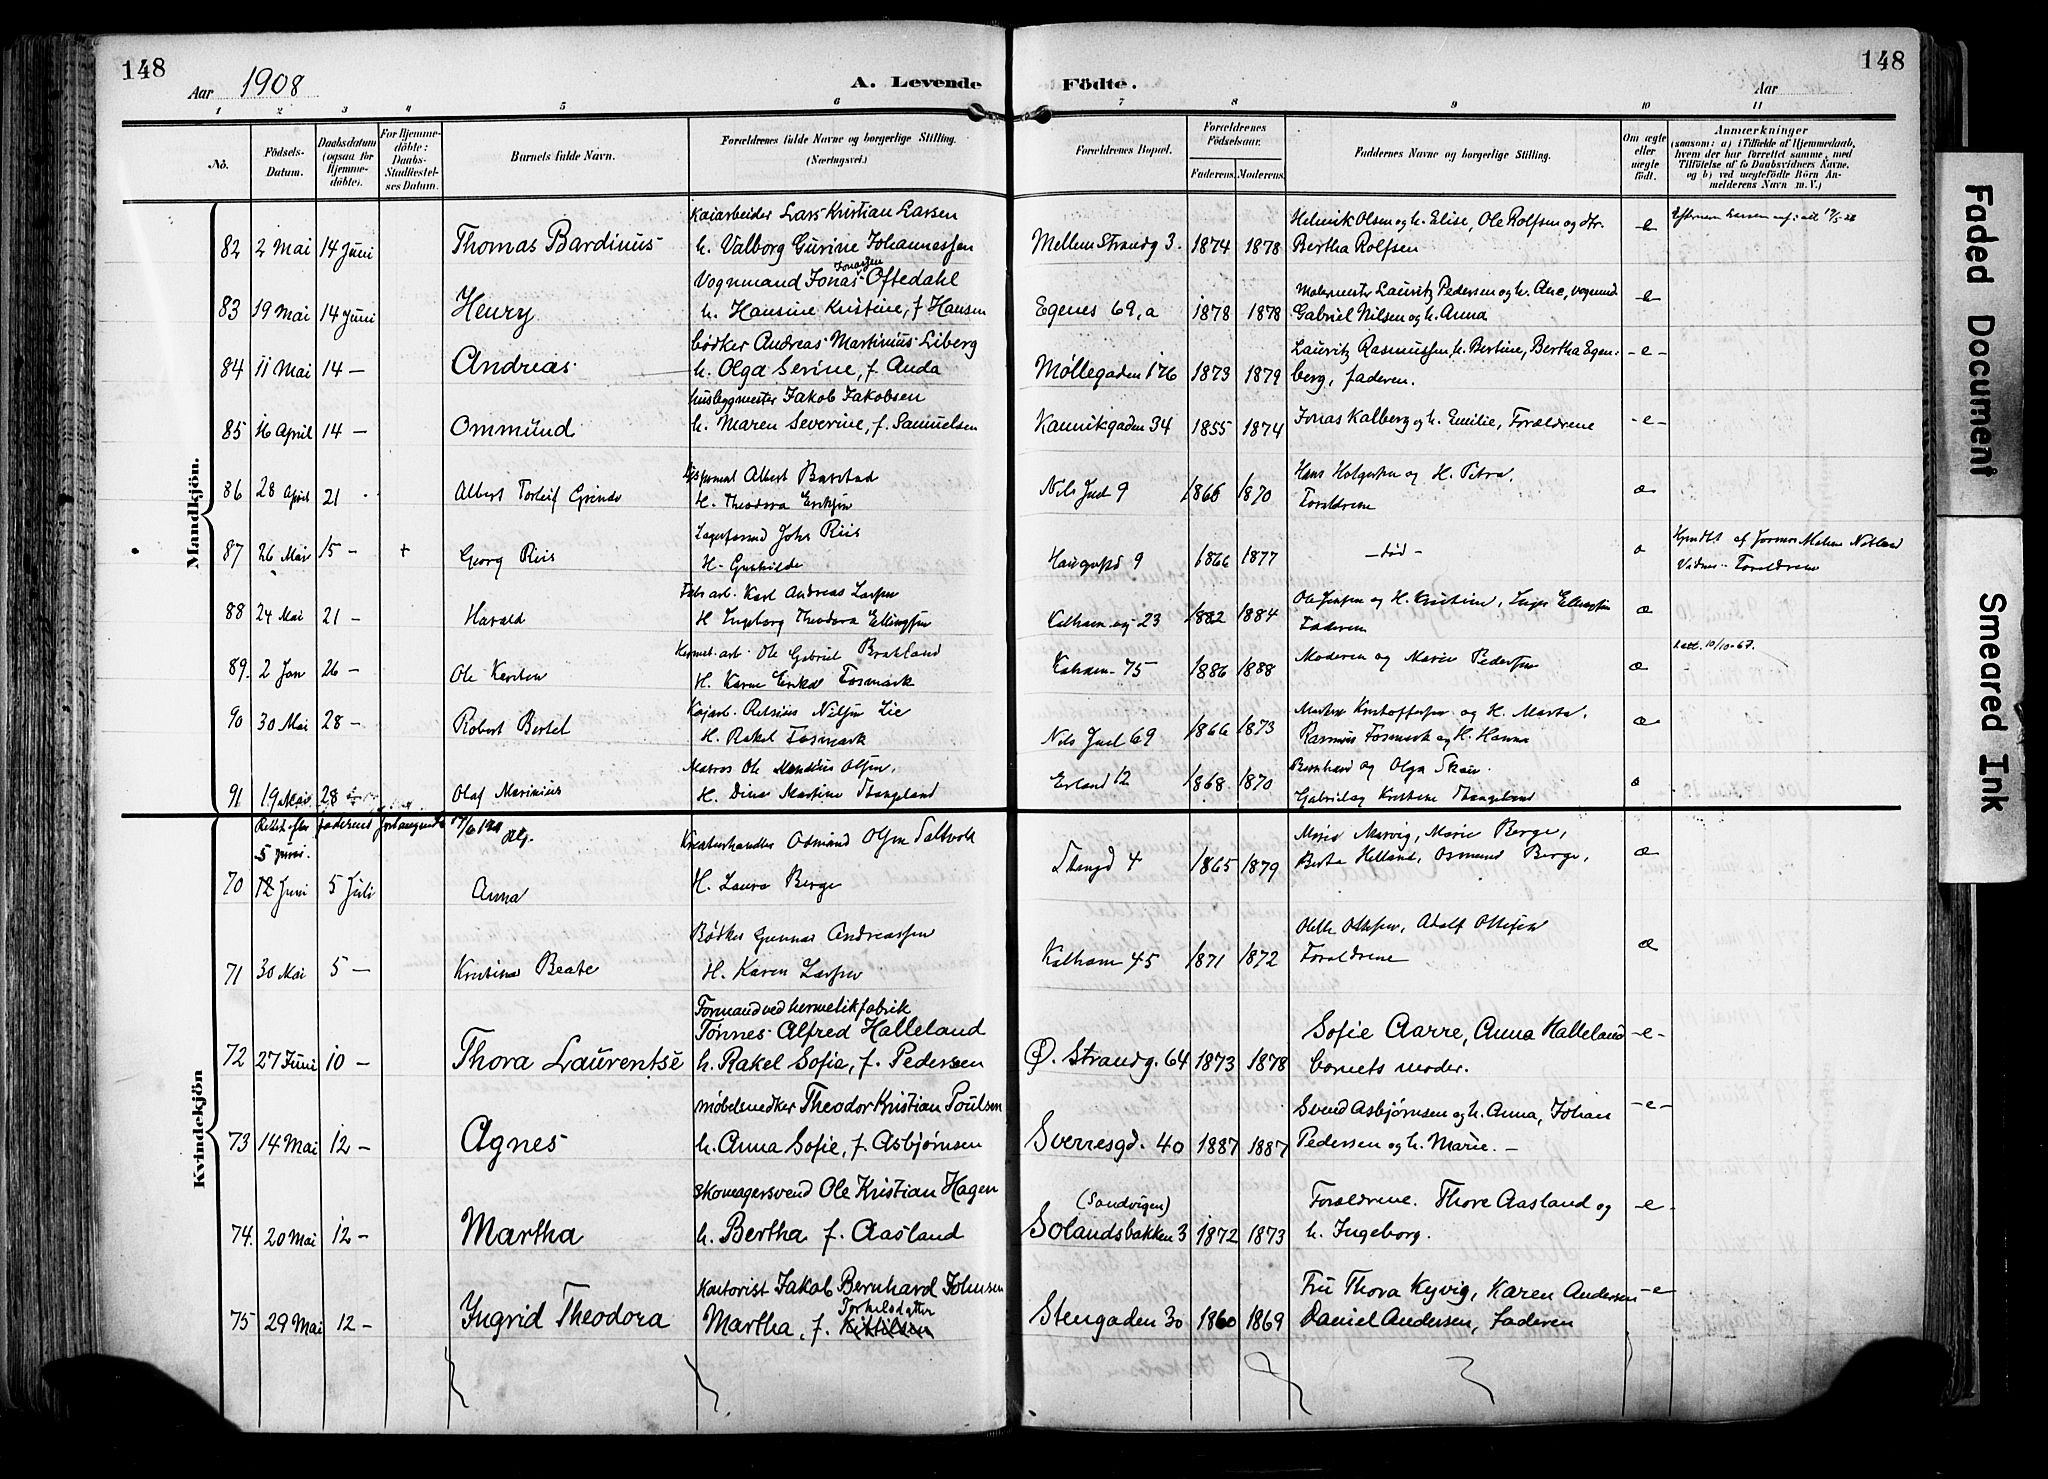 148
Aar 1908
A. Levende Födte.
Aar
148
1 2 3 4 5 6 7 8 9 10 11
No.
Födsels-Datum.
Daabsdatum (ogsaa for Hjemme-döbte).
For Hjemme-döbte: Daabs-Stadfæstel-ses Datum.
Barnets fulde Navn.
Forældrenes fulde Navne og borgerlige Stilling. (Næringsvei.)
Forældrenes Bopæl.
Forældrenes Födselsaar.
Faderens. Moderens.
Faddernes Navne og borgerlige Stilling.
Om ægte eller uægte födt.
Anmærkninger
(saasom: a) i Tilfælde af Hjemmedaab, hvem der har forrettet samme, med Tilföielse af to Daabsvidners Navne, og b) ved uegtefödte Börn An-melderens Navn m. V.)
Mandkjön.
Kaiarbeider Lars Kristian Larsen
82 2 Mai 14 Juni Thomas Bardinius h. Valborg Gurine Johannessen Mellem Strandg 3. 1874 1878
Helmik Olsen og h. Elise, Ole Rolfsen og dtr. Bertha Rolfsen -e-
Vognmand Jonas Jonassen Oftedahl
83 19 Mai 14 Juni Henry h. Hansine Kristine, f. Hansen Egenes 69, a 1878 1878
Malermester Lauritz Pedersen og h. Ane, vognmd Gabriel Nilsen og h. Anna -e-
bødker Andreas Martinius Liberg
84 11 Mai 14 - Andreas h. Olga Serine, f. Anda Møllegaden 126 1873 1879
Lauritz Rasmussen, h. Bertine, Bertha Egen-berg, faderen. -e-
husbygmester Jakob Jakobsen
85 16 April 14 - Ommund h. Maren Severine, f. Samuelsen Kannikgaden 34 1855 1874
Jonas Kalberg og h. Emilie, Forældrene -e-
86 28 April 21 - Albert Torleif Albert Barstad
H. Theodora Nils Juel 9 1866 1870
Hans Holgersen og H. Petra, Forældrene æ
87 26 Mai 15 - + Georg Riis Riis
H. Gunhilde Haugvald 9 1866 1877 - død -
af Jormor Malene Netland
Vidner: Forældrene
88 24 Mai 21 - Harald Fabr. arb. Karl Andreas Larsen
H Ingeborg Theodora Ellingsen Kalham. 23 1882 1884
Ole Jensen og H. Kristine, Inger Ellingsen
Faderen æ
89. 2 Jan 26 - Ole Kersten Hermet. arb. Ole Gabriel Bratland
H. Karen Erika Fosmark Kalham. 75 1886 1888 Moderen og Marie Pedersen æ
90 30 Mai 28 - Robert Bertel Kajarb. Retsius Nilsen Lie
H. Rakel Fosmark Nils Juel 69 1866 1873
Kristoffersen og H. Marta,
Rasmus Fosmark og H. Hanna æ
91 19 Mai 28 Olaf Marinius Matros Ole Olsen,
H. Dina Martine Stangeland Erland 12 1868 1870
Bernhard og Olga Skau
Gabriel og Kristine Stangeland
Kvindekjön
Rettet efter faderens forlangende
5 Juni.
70 12 Juni 5 Juli Anna Kreaturhandler Osmund Olsen Saltvold
H. Laura Berge Strand 4 1865 1879
Maria Marvig, Marie Berge,
Berta Helland, Osmund Berge, æ
71 30 Mai 5 - Kristina Beate Bødker Gunnar Andreassen
H. Karen Larsen Kalham 45 1871 1872
Othilie Ottesen, Adolf Ottesen
Forældrene æ
Formand ved hermetikfabrik
Tønnes Alfred Halleland
72 27 Juni 10 - Thora Laurentse h. Rakel Sofie, f. Pedersen Ø. Strandg. 64 1873 1878
Sofie Aarre, Anna Halleland
barnets moder. -e-
møbelsnedker Theodor Kristian Poulsen
73 14 Mai 12 - Agnes h. Anna Sofie, f. Asbjørnsen Sverresgd. 40 1887 1887
Svend Asbjørnsen og h. Anna, Johan
Pedersen og h. Marie. - -e-
skomagersvend Ole Kristian Hagen
74. 20 Mai 12 - Martha h. Bertha f. Aasland (Sandvigen) Solandsbakken 3 1872 1873
Forældrene. Thore Aasland og
h. Ingeborg. -e-
Kontorist Jakob Bernhard Johnsen
75 29 Mai 12 - Ingrid Theodora Martha, f. Torkelsdatter Stengaden 30 1860 1869
Fru Thora Kyvig, Karen Andersen
Daniel Andersen, Faderen -e-
Faded Document
Smeared Ink